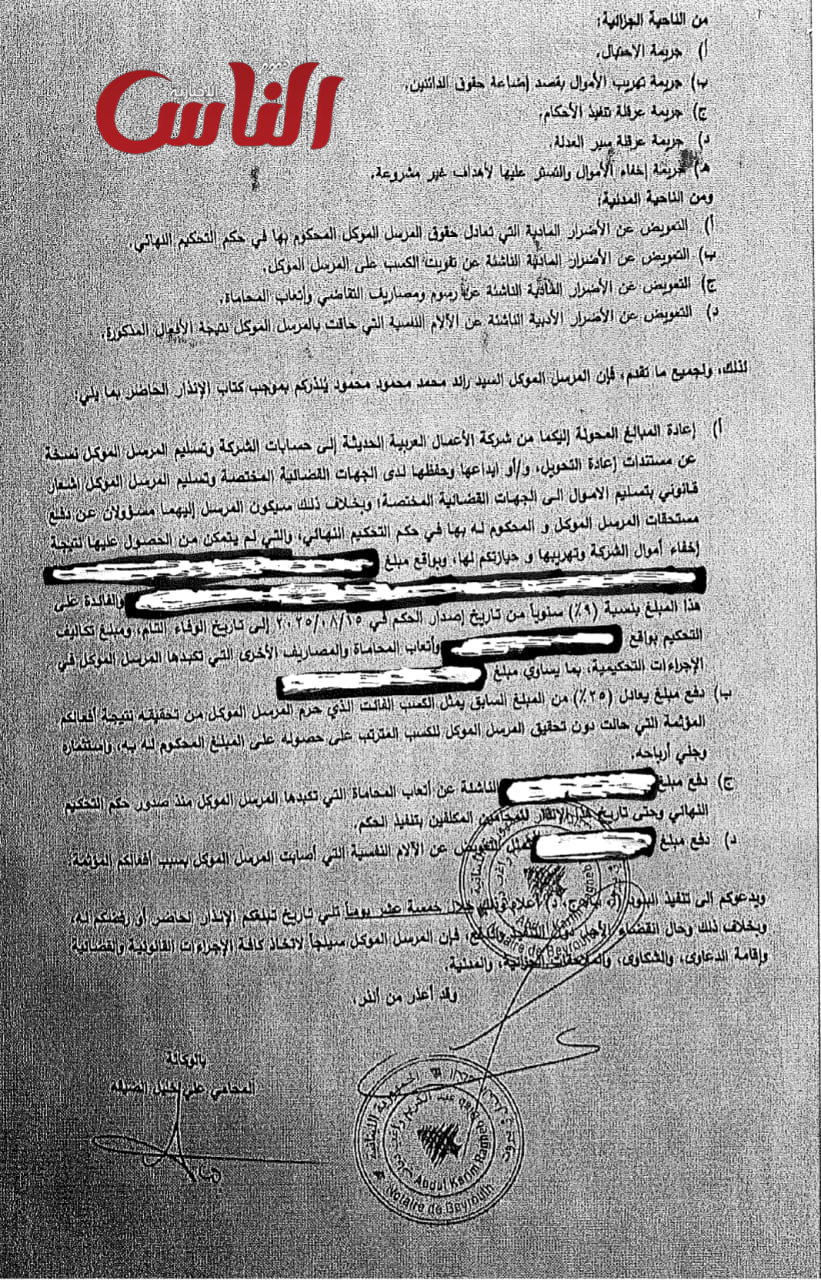 من الناحية الجزائية:
أ) جريمة الاحتيال.
ب) جريمة تهريب الأموال بقصد إضاعة حقوق الدائنين.
ج) جريمة عرقلة تنفيذ الأحكام.
د) جريمة عرقلة سير العدلة.
هـ) جريمة إخفاء الأموال والتستر عليها لأهداف غير مشروعة.
الناس
الإخبارية
ومن الناحية المدنية:
أ) التعويض عن الأضرار المادية التي تعادل حقوق المرسل الموكل المحكوم بها في حكم التحكيم النهائي.
ب) التعويض عن الأضرار المادية الناشئة عن تفويت الكسب على المرسل الموكل.
ج) التعويض عن الأضرار المادية الناشئة عن رسوم ومصاريف التقاضي وأتعاب المحاماة.
د) التعويض عن الأضرار الأدبية الناشئة عن الآلام النفسية التي حاقت بالمرسل الموكل نتيجة الأفعال المذكورة.
لذلك، ولجميع ما تقدم، فإن المرسل الموكل السيد رائد محمد محمود محمود يُنذركم بموجب كتاب الإنذار الحاضر بما يلي:
أ) إعادة المبالغ المحولة إليكما من شركة الأعمال العربية الحديثة إلى حسابات الشركة وتسليم المرسل الموكل نسخة
عن مستندات إعادة التحويل، و/أو ايداعها وحفظها لدى الجهات القضائية المختصة وتسليم المرسل الموكل إشعار
قانوني بتسليم الاموال الى الجهات القضائية المختصة؛ وبخلاف ذلك سيكون المرسل إليهما مسؤولان عن دفع
مستحقات المرسل الموكل و المحكوم له بها في حكم التحكيم النهائي، والتي لم يتمكن من الحصول عليها نتيجة
إخفاء أموال الشركة وتهريبها و حيازتكم لها، وبواقع مبلغ
والفائدة على
هذا المبلغ بنسبة (٩٪) سنوياً من تاريخ إصدار الحكم في ٢٠٢٥/٠٨/١٥ إلى تاريخ الوفاء التام، ومبلغ تكاليف
التحكيم بواقع وأتعاب المحاماة والمصاريف الأخرى التي تكبدها المرسل الموكل في
الإجراءات التحكيمية، بما يساوي مبلغ
ب) دفع مبلغ يعادل (٢٥٪) من المبلغ السابق يمثل الكسب الفائت الذي حرم المرسل الموكل من تحقيقه نتيجة أفعالكم
المؤثمة التي حالت دون تحقيق المرسل الموكل للكسب المترتب على حصوله على المبلغ المحكوم له به، واستثماره
وجني أرباحه.
ج) دفع مبلغ الناشئة عن أتعاب المحاماة التي تكبدها المرسل الموكل منذ صدور حكم التحكيم
النهائي وحتى تاريخ هذا الإنذار للمحامين المكلفين بتنفيذ الحكم.
د) دفع مبلغ التعويض عن الآلام النفسية التي أصابت المرسل الموكل بسبب أفعالكم المؤثمة.
ويدعوكم الى تنفيذ البنود (أ، ب، ج، د) أعلاه وذلك خلال خمسة عشر يوماً تلي تاريخ تبلغكم الإنذار الحاضر أو رفضكم له،
وبخلاف ذلك وحال انقضاء الأجل دون التنفيذ والدفع، فإن المرسل الموكل سيلجأ لاتخاذ كافة الإجراءات القانونية والقضائية
وإقامة الدعاوى، والشكاوى، والملاحقات الجزائية، والمدنية.
وقد أعذر من أنذر.
بالوكالة
المحامي علي خليل الضيقة
الجمهورية اللبنانية
Notaire de Beyrouth